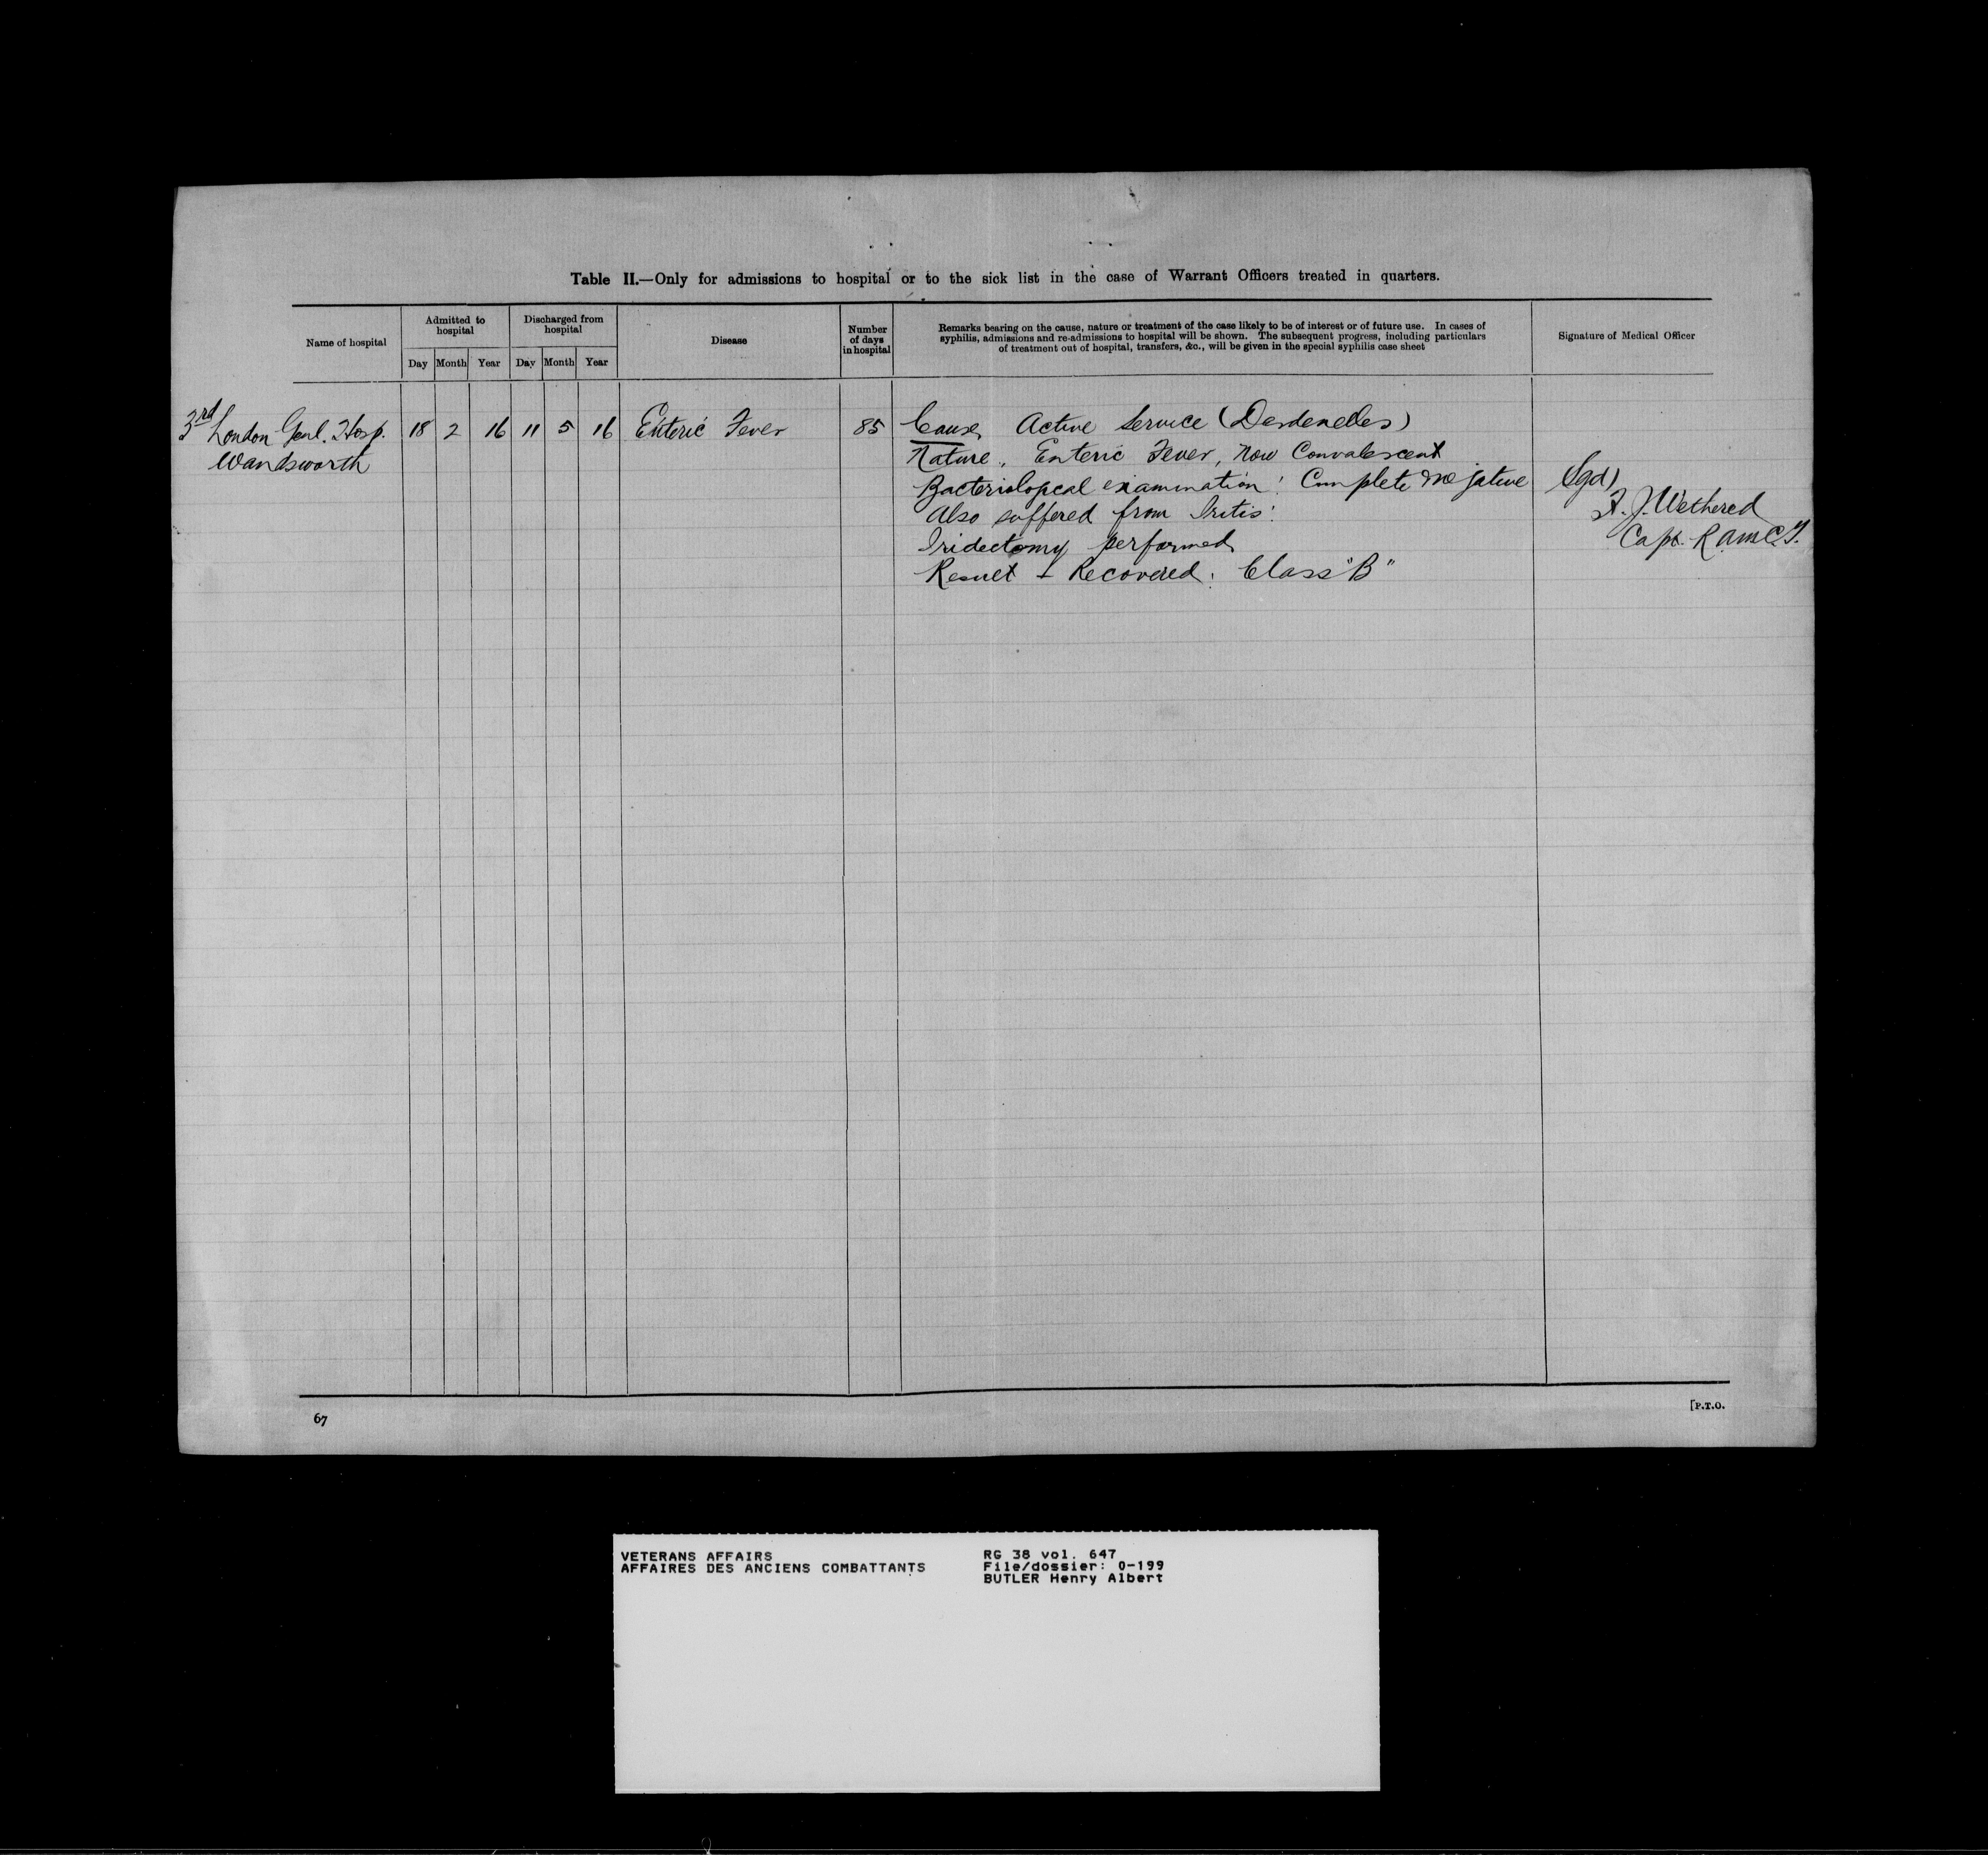 Table II.—Only for admissions to hospital or to the sick list in the case of Warrant Officers treated in quarters.
Name of hospital
Admitted to hospital
Discharged from hospital
Disease
Number of days in hospital
Remarks bearing on the cause, nature or treatment of the case likely to be of interest or of future use. In cases of
syphilis, admissions and re-admissions to hospital will be shown. The subsequent progress, including particulars
of treatment out of hospital, transfers, &c., will be given in the special syphilis case sheet
Signature of Medical Officer
Day Month Year Day Month Year
3rd London Genl. Hosp. 18 2 16 11 5 16 Enteric Fever 85 Cause, Active Service (Dardenelles)
Wandsworth
Nature, Enteric Fever, Now Convalescent
Bacteriological examination: Complete Negative
Also suffered from Iritis:
Iridectomy performed
Result - Recovered. Class "B"
(Sgd)
F. J. Wethered
Capt. R.A.M.C.T.
67
[P.T.O.
VETERANS AFFAIRS
AFFAIRES DES ANCIENS COMBATTANTS
RG 38 vol. 647
File/dossier: 0-199
BUTLER Henry Albert